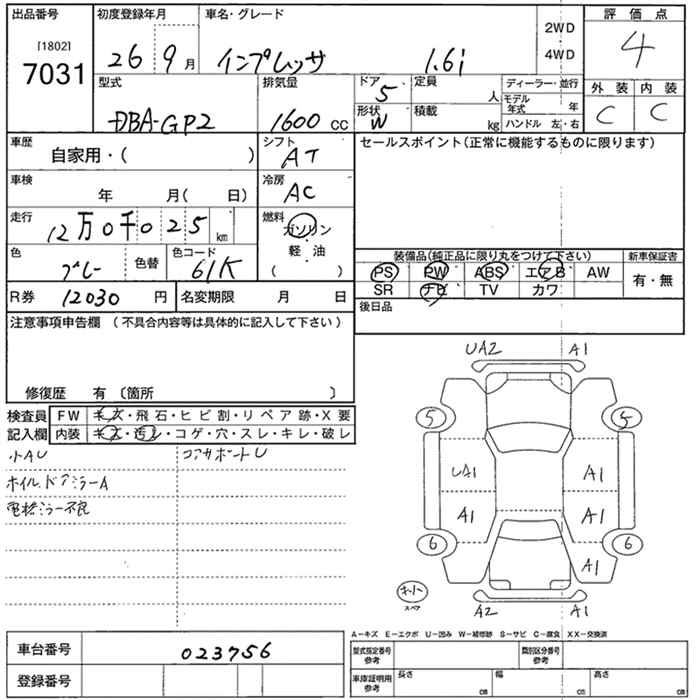 出品番号 初度登録年月 車名・グレード 評価点
[1802]
7031
26 9月 インプレッサ 1.6i 2WD 4WD 4
型式 排気量 ドア 定員 ディーラー・並行 外装 内装
DBA-GP2 1600 cc 5 人 モデル年式 年 C C
形状 W 積載 kg ハンドル 左・右
車歴 自家用・( ) シフト AT セールスポイント(正常に機能するものに限ります)
車検 年 月( 日) 冷房 AC
走行 12万0千025 km 燃料 ガソリン・軽・油 ( )
色 グレー 色替 色コード 61K
装備品(純正品に限り丸をつけて下さい) 新車保証書
PS PW ABS エアB AW 有・無
SR ナビ TV カワ
R券 12030 円 名変期限 月 日 後日品
注意事項申告欄 (不具合内容等は具体的に記入して下さい)
修復歴 有 〔箇所 〕
検査員記入欄 FW キズ・飛石・ヒビ割・リペア跡・X要
内装 キズ・汚レ・コゲ・穴・スレ・キレ・破レ
小AU コアサポートU
ホイル、ドアミラーA
電格ミラー不良
UA2 A1
5 5
UA1 A1
A1 A1
6 6
A1
スペア
A2 A1
A-キズ E-エクボ U-凹み W-補修跡 S-サビ C-腐食 XX-交換済
車台番号 023756
型式指定番号 参考 類別区分番号 参考
登録番号
車庫証明用 参考 長さ cm 幅 cm 高さ cm